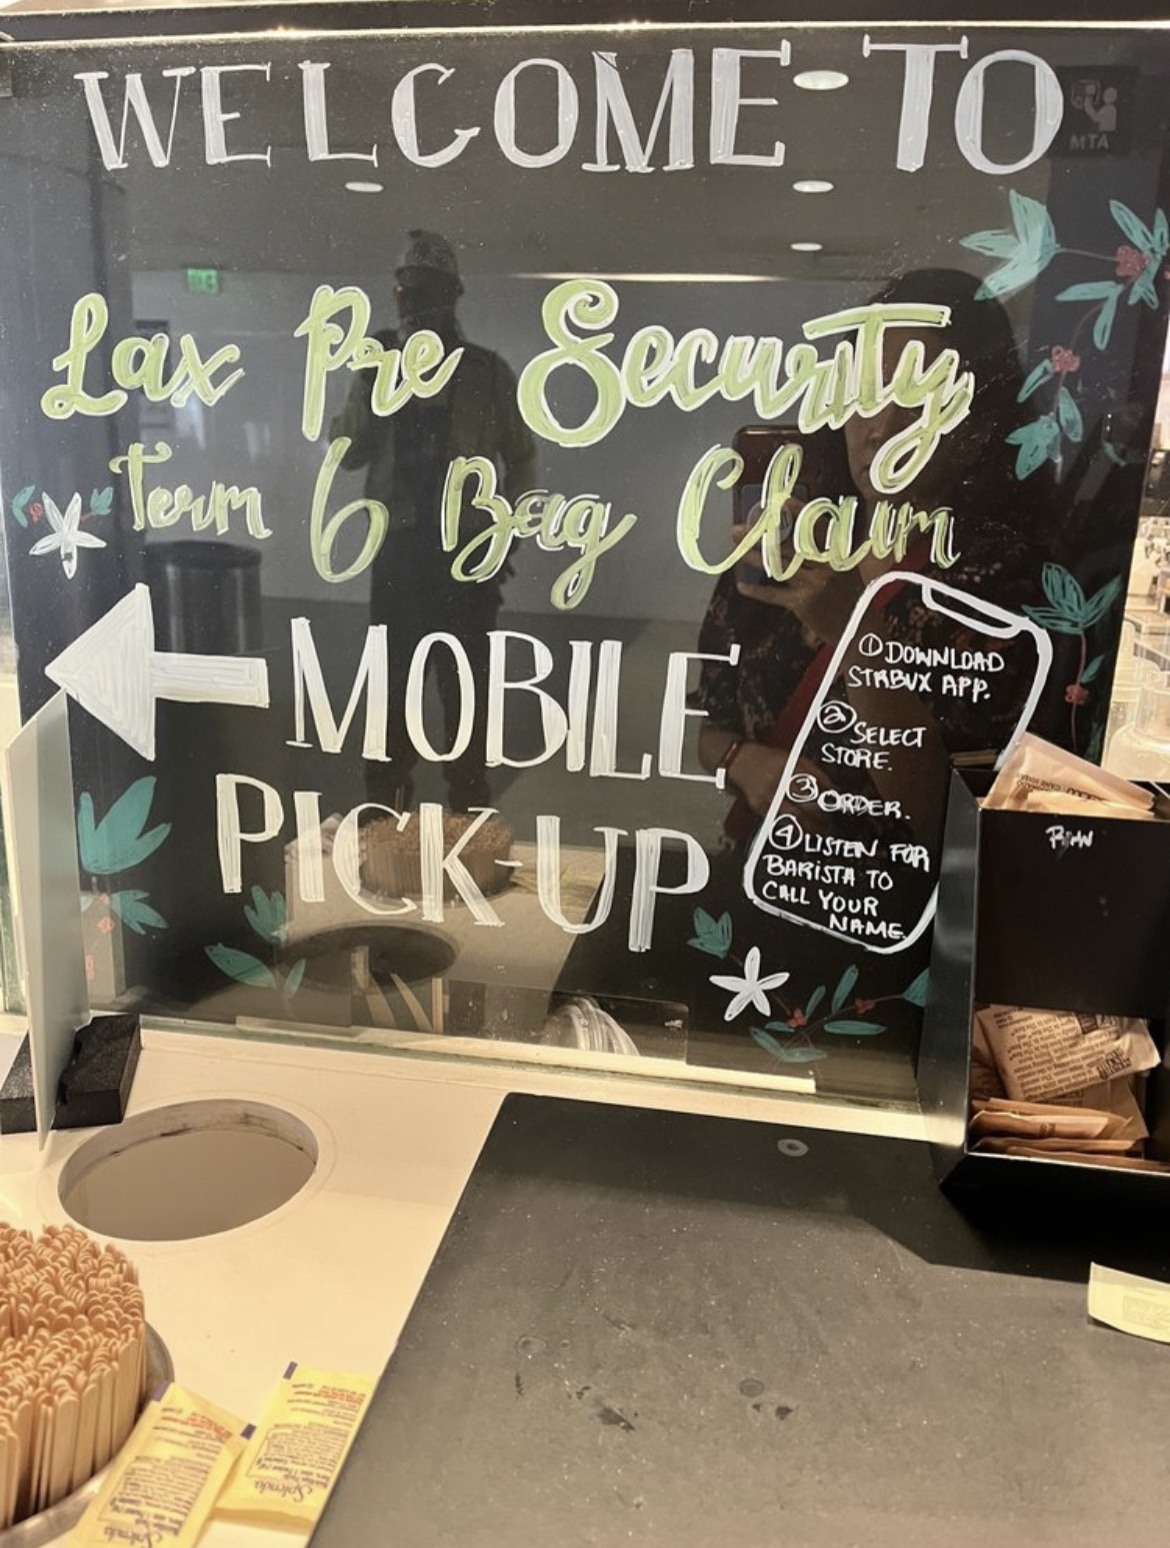 WELCOME TO
MTA
Lax Pre Security
Term 6 Bag Claim
MOBILE
PICK-UP
① DOWNLOAD
STRBUX APP.
② SELECT
STORE.
③ ORDER.
④ LISTEN FOR
BARISTA TO
CALL YOUR
NAME.
RAW
Splenda
Splenda